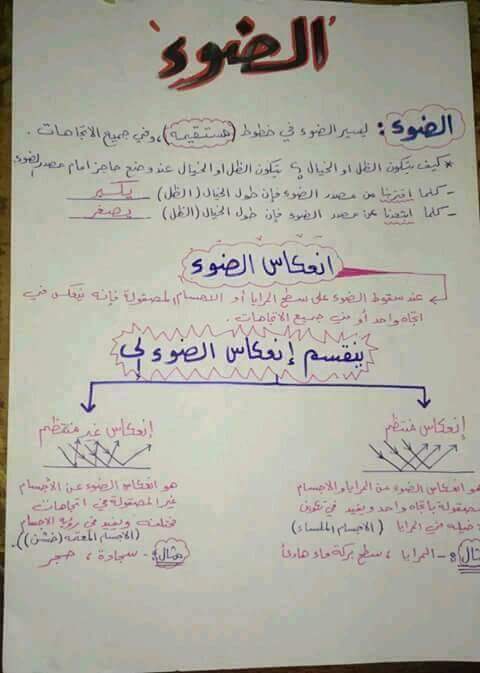 الضوء
الضوء: يسير الضوء في خطوط (مستقيمة)، وفي جميع الاتجاهات.
* كيف يتكون الظل او الخيال؟ يتكون الظل او الخيال عند وضع حاجز امام مصدر الضوء
- كلما اقتربنا من مصدر الضوء فإن طول الخيال (الظل) يكبر
- كلما ابتعدنا عن مصدر الضوء فإن طول الخيال (الظل) يصغر
انعكاس الضوء
عند سقوط الضوء على سطح المرايا أو الاجسام المصقولة فإنه ينعكس في
اتجاه واحد أو في جميع الاتجاهات.
ينقسم إنعكاس الضوء إلى
إنعكاس منتظم
هو انعكاس الضوء عن المرايا والاجسام
المصقولة باتجاه واحد ويفيد في تكوين
خيال في المرايا (الاجسام الملساء)
مثال: - المرايا، سطح بركة ماء هادئة
إنعكاس غير منتظم
هو انعكاس الضوء عن الأجسام
غير المصقولة في اتجاهات
مختلفة ويفيد في رؤية الاجسام
(الاجسام المعتمة (خشن)).
مثال: - سجادة، حجر